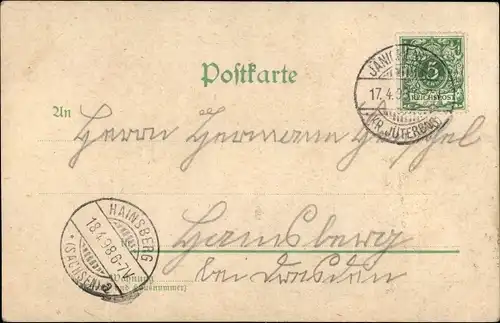 JÄNICKEN
17.4.98
(KR. JÜTERBOG)
5
REICHSPOST
Postkarte
An
Herrn Hermann
HAINSBERG
18.4.98.6-7V.
*(SACHSEN)a
Hainsberg
bei Dresden
Wohnung
(Straße und Hausnummer)